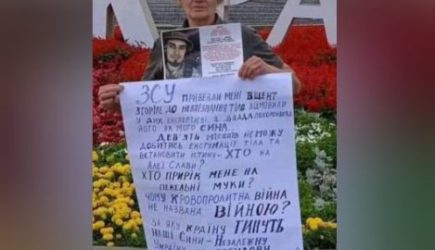 ЗСУ ПРИВЕЗЛИ МЕНІ В ЦЕНТ
ЗГОРІЛЕ ДО НЕВПІЗНАННЯ ТІЛО. ВІДМОВИЛИ
У ДНК ЕКСПЕРТИЗІ, А ВЛАДА ПОХОРОНИЛА
ЙОГО ЯК МОГО СИНА...
ДЕВ'ЯТЬ МІСЯЦІВ НЕ МОЖУ
ДОБИТИСЬ ЕКСГУМАЦІЇ ТІЛА ТА
ВСТАНОВИТИ ІСТИНУ - ХТО НА
АЛЕЇ СЛАВИ?
ХТО ПРИРІК МЕНЕ НА
ПЕКЕЛЬНІ МУКИ?
ЧОМУ КРОВОПРОЛИТНА ВІЙНА
НЕ НАЗВАНА ВІЙНОЮ?
ЗА ЯКУ КРАЇНУ ГИНУТЬ
НАШІ СИНИ - НЕЗАЛЕЖНУ